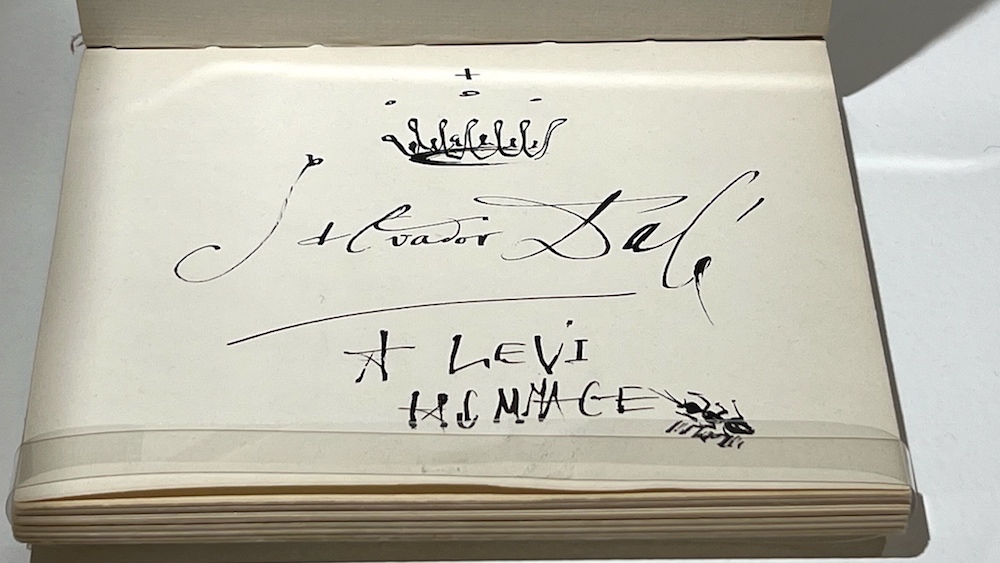 Salvador Dalí
A LEVI
HOMMAGE